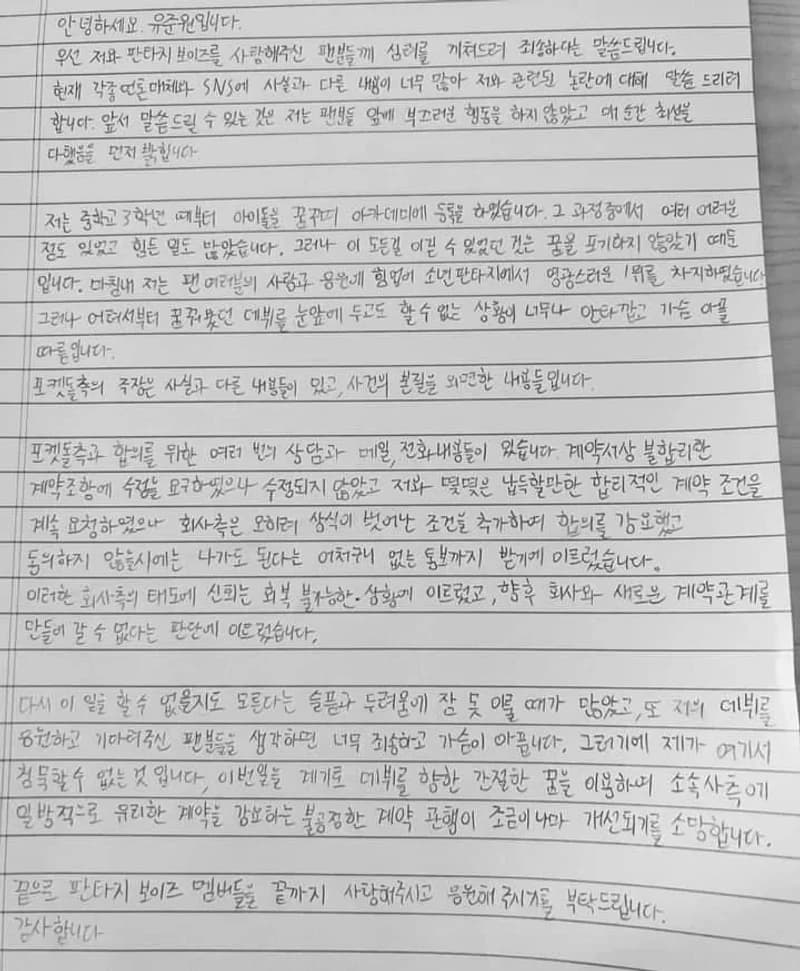 안녕하세요. 유준원입니다.
우선 저와 판타지 보이즈를 사랑해주신 팬분들께 심려를 끼쳐드려 죄송하다는 말씀드립니다.
현재 각종언론매체와 SNS에 사실과 다른 내용이 너무 많아 저와 관련된 논란에 대해 말씀 드리려
합니다. 앞서 말씀드릴 수 있는 것은 저는 팬분들 앞에 부끄러운 행동을 하지 않았고 매 순간 최선을
다했음을 먼저 밝힙니다
저는 중학교 3학년 때부터 아이돌을 꿈꾸며 아카데미에 등록을 하였습니다. 그 과정중에서 여러 어려운
점도 있었고 힘든 일도 많았습니다. 그러나 이 모든걸 이길 수 있었던 것은 꿈을 포기하지 않았기 때문
입니다. 마침내 저는 팬 여러분의 사랑과 응원에 힘입어 소년판타지에서 영광스러운 1위를 차지하였습니다
그러나 어려서부터 꿈꿔왔던 데뷔를 눈앞에 두고도 할 수 없는 상황이 너무나 안타깝고 가슴 아플
따름입니다.
포켓돌측의 주장은 사실과 다른 내용들이 있고, 사건의 본질을 외면한 내용들입니다.
포켓돌측과 합의를 위한 여러 번의 상담과 메일, 전화내용들이 있습니다. 계약서상 불합리한
계약조항에 수정을 요구하였으나 수정되지 않았고 저와 몇몇은 납득할만한 합리적인 계약 조건을
계속 요청하였으나 회사측은 오히려 상식이 벗어난 조건을 추가하여 합의를 강요했고
동의하지 않을시에는 나가도 된다는 어처구니 없는 통보까지 받기에 이르렀습니다.
이러한 회사측의 태도에 신뢰는 회복 불가능한 상황에 이르렀고, 향후 회사와 새로운 계약관계를
만들어 갈 수 없다는 판단에 이르렀습니다.
다시 이 일을 할 수 없을지도 모른다는 슬픔과 두려움에 잠 못 이룰 때가 많았고, 또 저의 데뷔를
응원하고 기다려주신 팬분들을 생각하면 너무 죄송하고 가슴이 아픕니다. 그러기에 제가 여기서
침묵할 수 없는 것 입니다. 이번일을 계기로 데뷔를 향한 간절한 꿈을 이용하여 소속사측에
일방적으로 유리한 계약을 강요하는 불공정한 계약 관행이 조금이나마 개선되기를 소망합니다.
끝으로 판타지 보이즈 멤버들을 끝까지 사랑해주시고 응원해 주시기를 부탁드립니다.
감사합니다